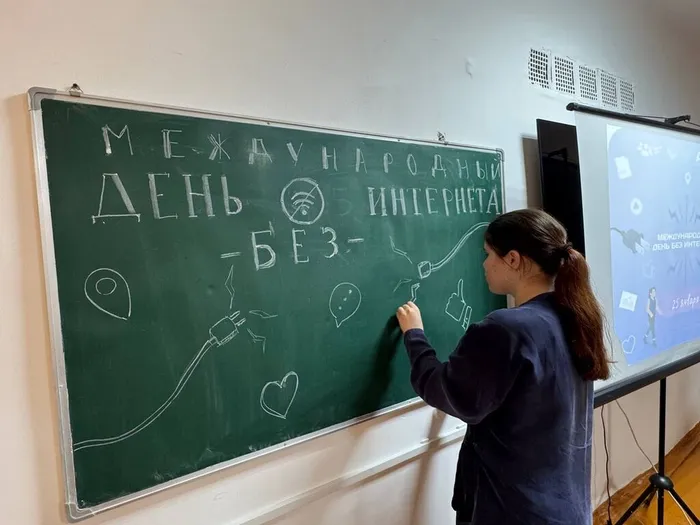 МЕЖДУНАРОДНЫЙ
ДЕНЬ ИНТЕРНЕТА
-БЕЗ-
МЕЖДУНАРОД
ДЕНЬ БЕЗ ИНТЕ
25 января